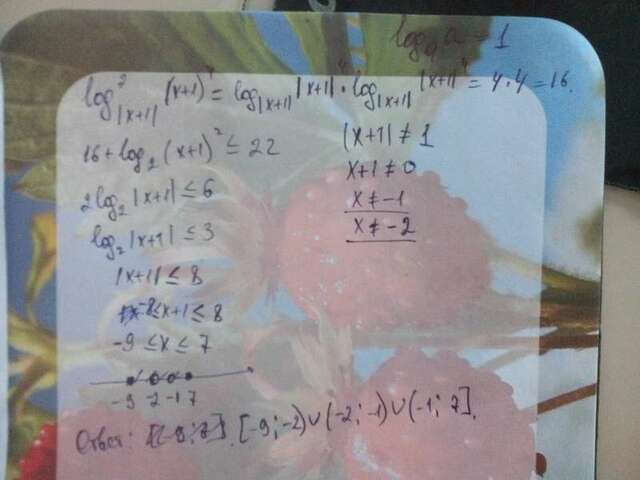 log_a a = 1
log²_{|x+1|} (x+1)⁴ = log_{|x+1|} |x+1|⁴ · log_{|x+1|} (x+1)⁴ = 4·4 = 16.
16 + log₂ (x+1)² ≤ 22
2log₂ |x+1| ≤ 6
log₂ |x+1| ≤ 3
|x+1| ≤ 8
-8 ≤ x+1 ≤ 8
-9 ≤ x ≤ 7
|x+1| ≠ 1
x+1 ≠ 0
x ≠ -1
x ≠ -2
-9 -2 -1 7
Ответ: [-9; -2) ∪ (-2; -1) ∪ (-1; 7].